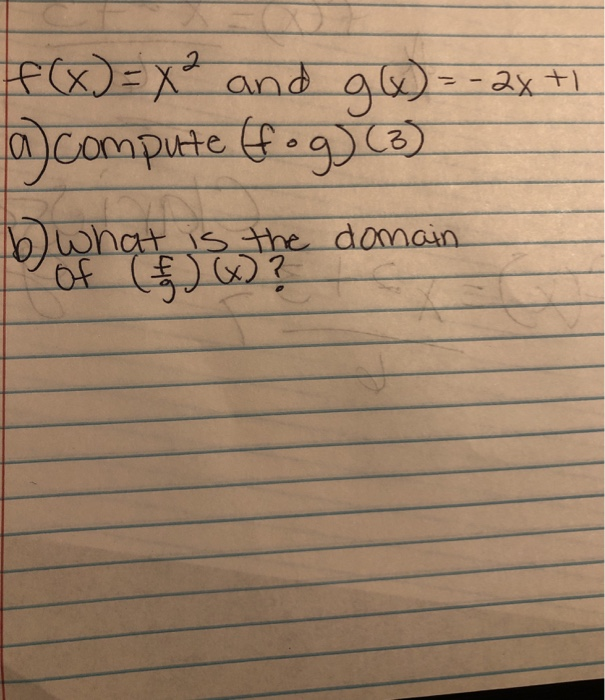 f(x) = x² and g(x) = -2x +1
a) compute (f∘g)(3)
b) what is the domain
of (f/g)(x)?